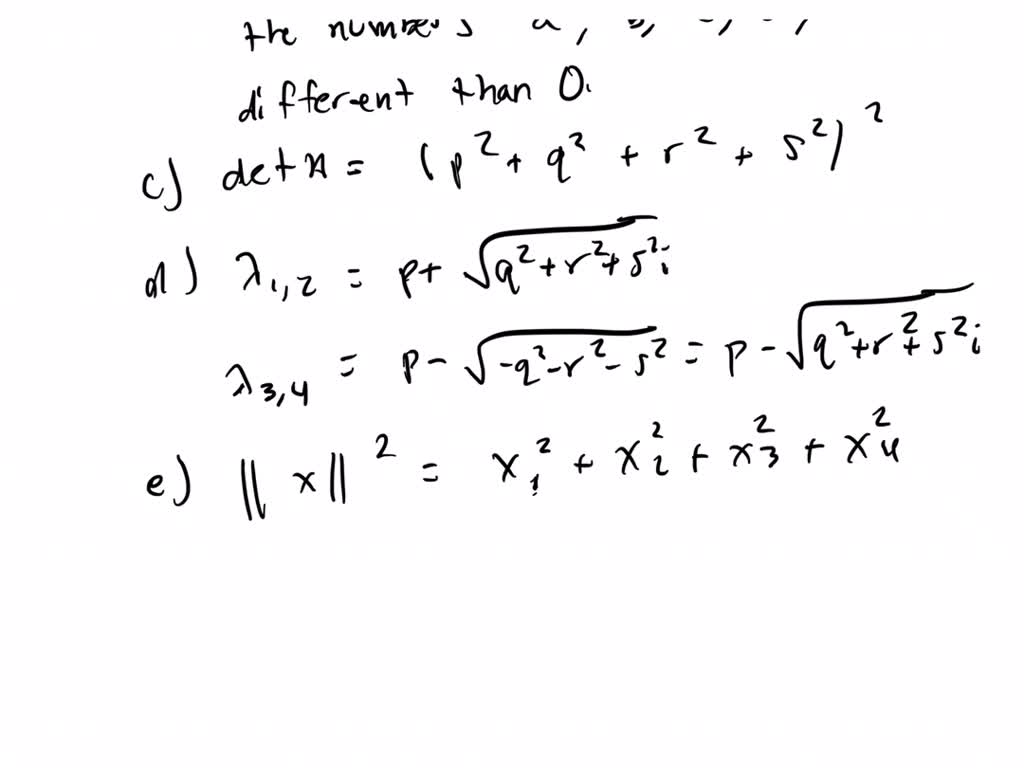 the numbers a, b, c, d,
different than 0.
c) det A = (p² + q² + r² + s²)²
d) λ₁,₂ = p+ √q²+r²+s² i
λ₃,₄ = p- √-q²-r²-s² = p-√q²+r²+s² i
e) ‖x‖² = x₁² + x₂² + x₃² + x₄²